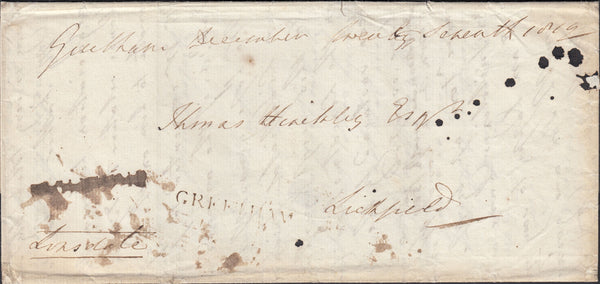 Greetham December twenty Seventh 1819
Thomas Hinckley Esqr
GREETHAM
Lichfield
Lonsdale